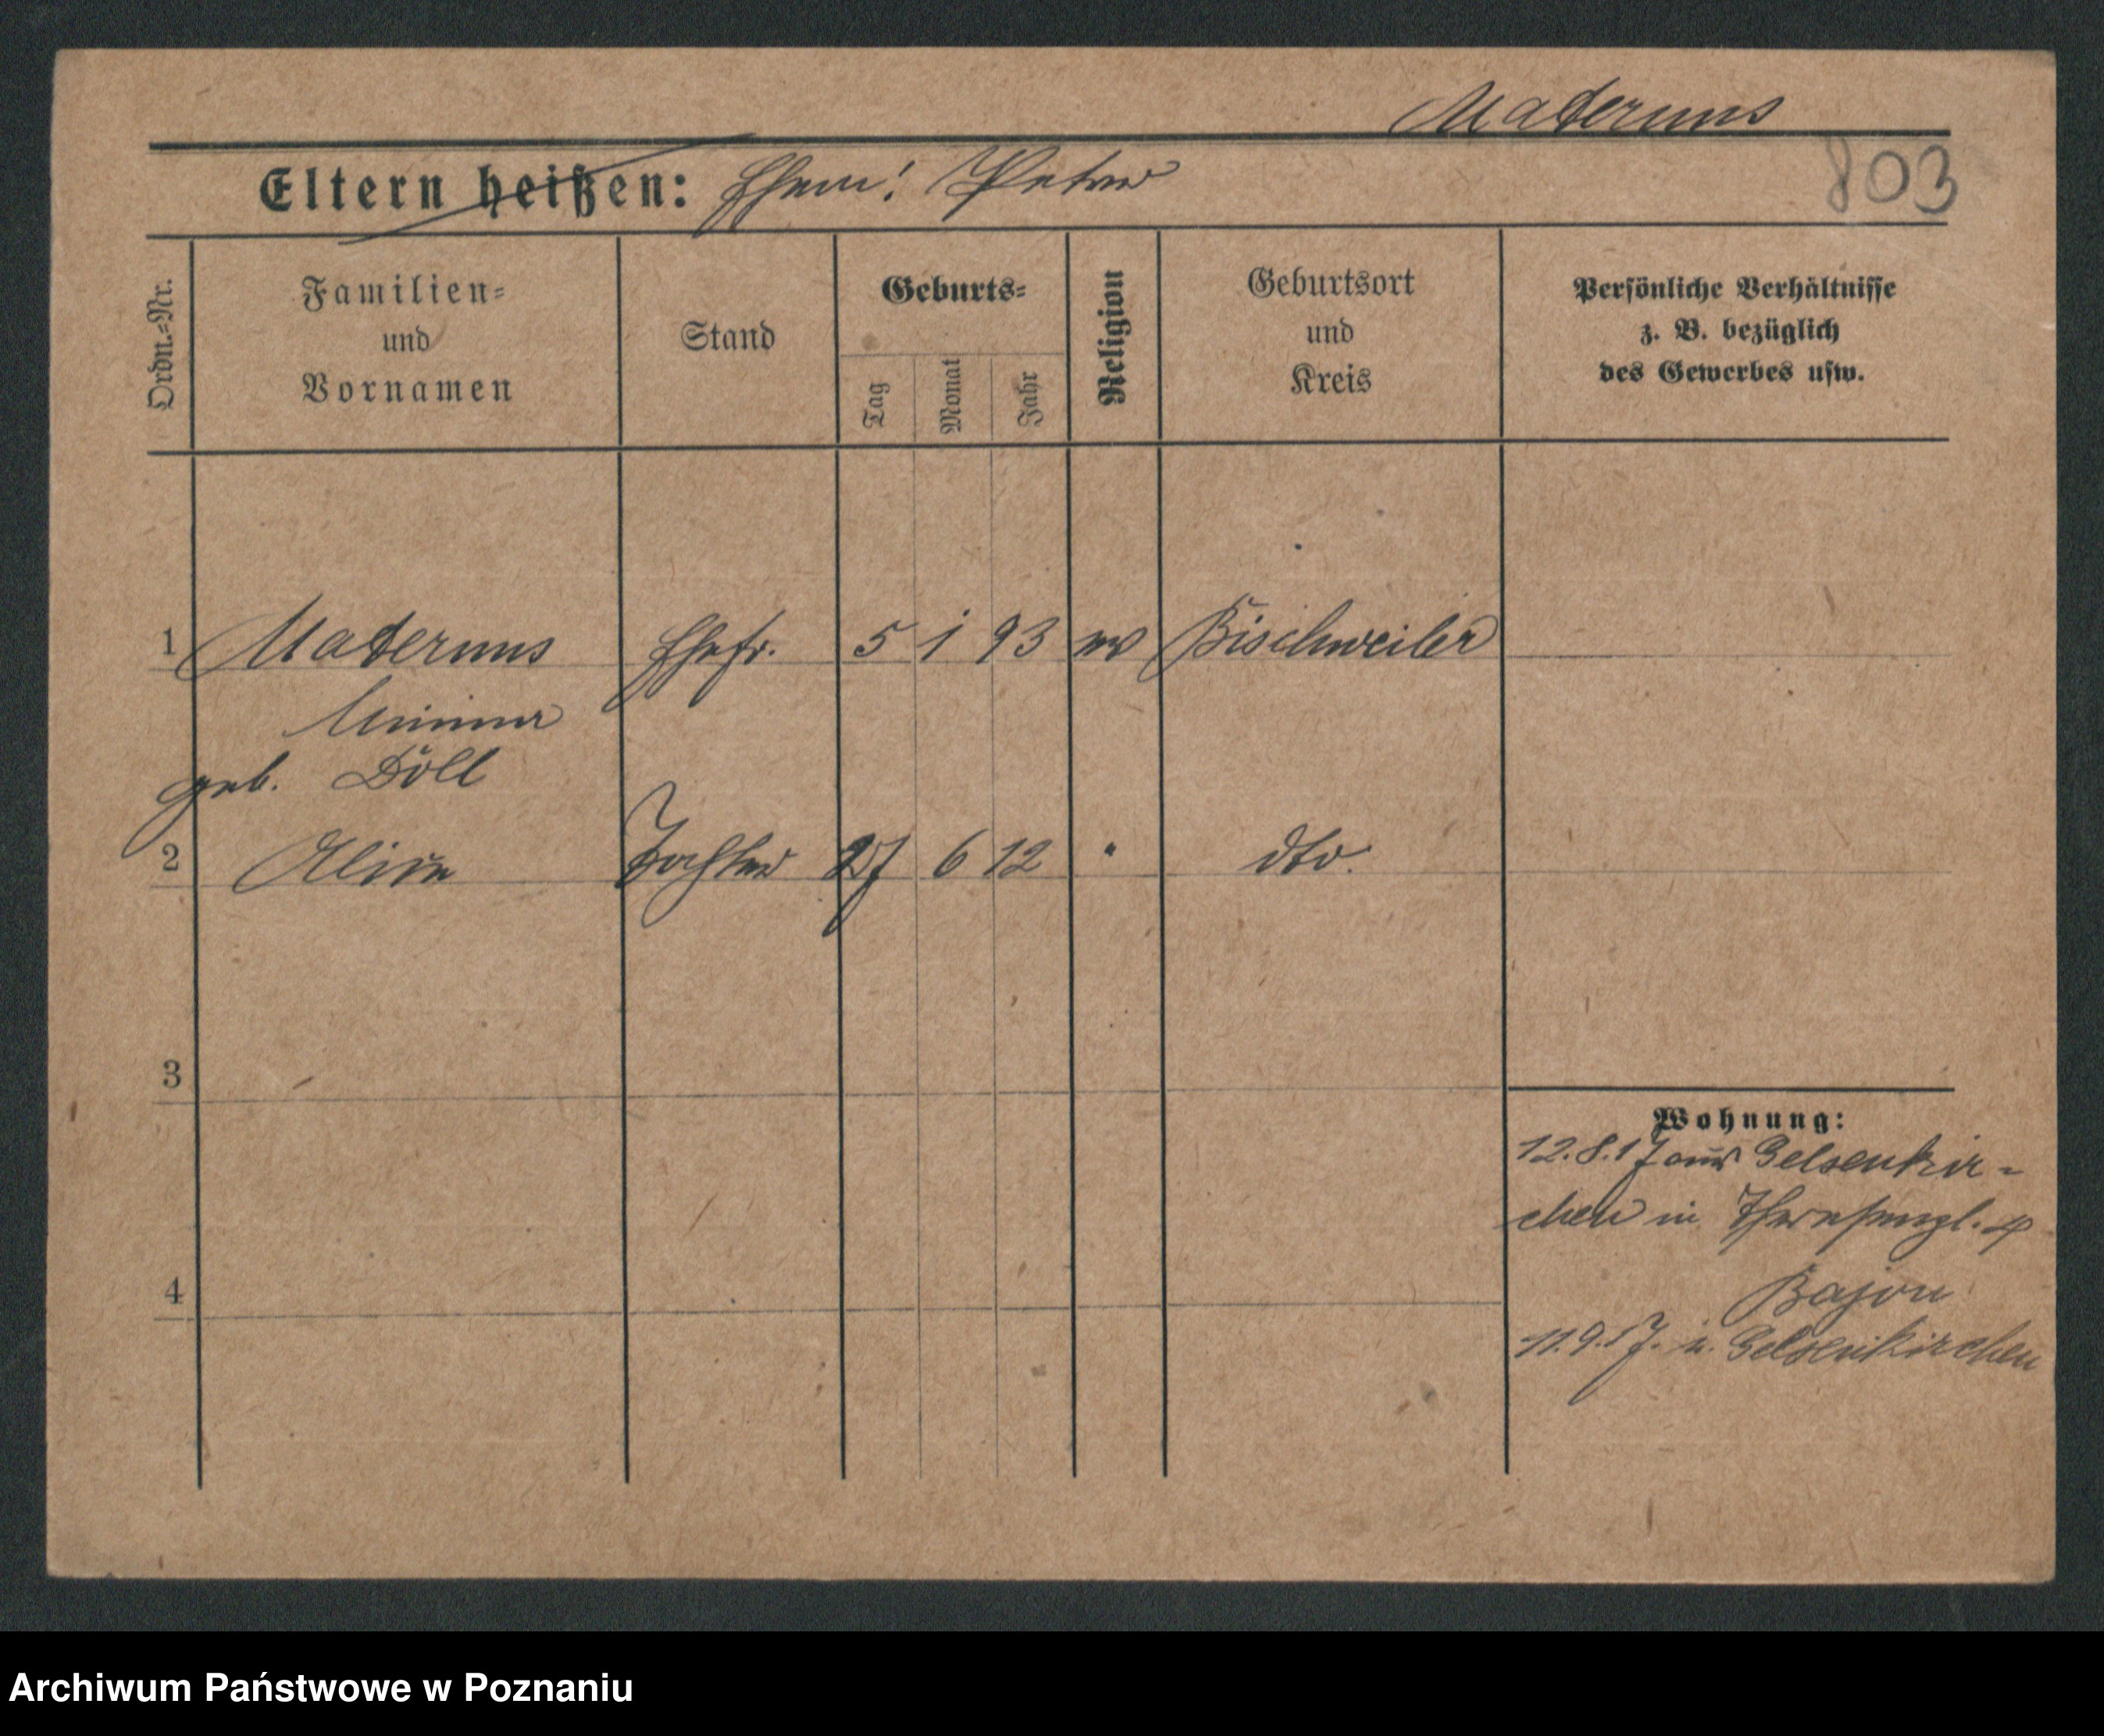 Maderuns
Eltern heißen: Ehem: Peter
803
Ordn.=Nr.
Familien=
und
Vornamen
Stand
Geburts=
Tag
Monat
Jahr
Religion
Geburtsort
und
Kreis
Persönliche Verhältnisse
z. B. bezüglich
des Gewerbes usw.
1 Maderuns Ehefr. 5 1 93 ev Bischweiler
geb. Döll
2 Alice Tochter 27 6 12 " dto.
3
Wohnung:
12.8.17 aus Gelsenkir-
chen in
4
Bajon
11.9.17. n. Gelsenkirchen
Archiwum Państwowe w Poznaniu